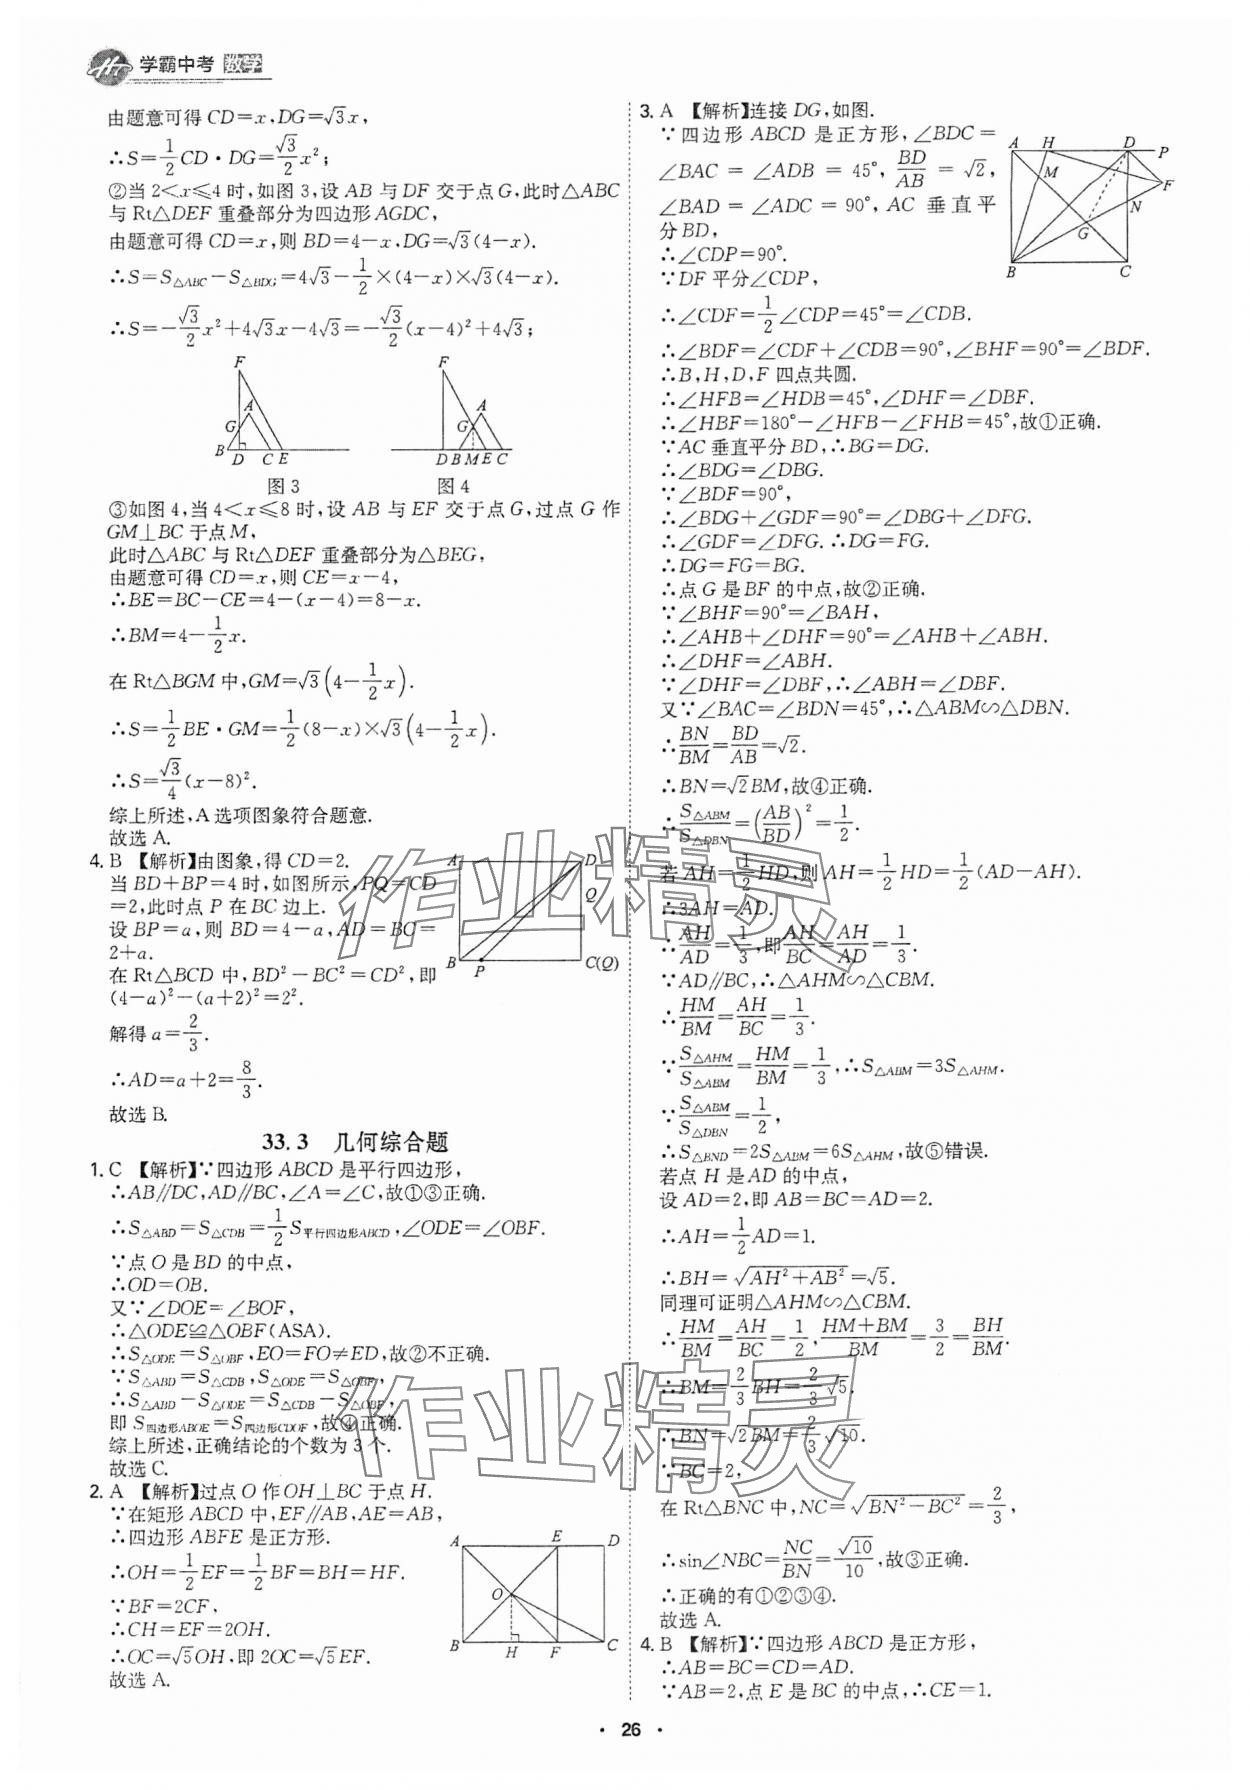 学霸中考 数学
由题意可得 CD=x,DG=√3x,
∴S=1/2 CD·DG=√3/2 x²;
②当 2<x≤4 时,如图 3,设 AB 与 DF 交于点 G,此时△ABC
与 Rt△DEF 重叠部分为四边形 AGDC,
由题意可得 CD=x,则 BD=4-x,DG=√3(4-x).
∴S=S△ABC-S△BDG=4√3-1/2×(4-x)×√3(4-x).
∴S=-√3/2 x²+4√3x-4√3=-√3/2(x-4)²+4√3;
F
G
A
B
D
C
E
图 3
F
G
A
D
B
M
E
C
图 4
③如图 4,当 4<x≤8 时,设 AB 与 EF 交于点 G,过点 G 作
GM⊥BC 于点 M,
此时△ABC 与 Rt△DEF 重叠部分为△BEG,
由题意可得 CD=x,则 CE=x-4,
∴BE=BC-CE=4-(x-4)=8-x.
∴BM=4-1/2 x.
在 Rt△BGM 中,GM=√3(4-1/2 x).
∴S=1/2 BE·GM=1/2(8-x)×√3(4-1/2 x).
∴S=√3/4(x-8)².
综上所述,A 选项图象符合题意.
故选 A.
4. B 【解析】由图象,得 CD=2.
当 BD+BP=4 时,如图所示,PQ=CD
=2,此时点 P 在 BC 边上.
设 BP=a,则 BD=4-a,AD=BC=
2+a.
在 Rt△BCD 中,BD²-BC²=CD²,即
(4-a)²-(a+2)²=2².
解得 a=2/3.
∴AD=a+2=8/3.
故选 B.
A
D
Q
B
P
C(Q)
33.3 几何综合题
1. C 【解析】∵四边形 ABCD 是平行四边形,
∴AB∥DC,AD∥BC,∠A=∠C,故①③正确.
∴S△ABD=S△CDB=1/2 S平行四边形ABCD,∠ODE=∠OBF.
∵点 O 是 BD 的中点,
∴OD=OB.
又∵∠DOE=∠BOF,
∴△ODE≌△OBF(ASA).
∴S△ODE=S△OBF,EO=FO≠ED,故②不正确.
∵S△ABD=S△CDB,S△ODE=S△OBF,
∴S△ABD-S△ODE=S△CDB-S△OBF,
即 S四边形ABOE=S四边形CDOF,故④正确.
综上所述,正确结论的个数为 3 个.
故选 C.
2. A 【解析】过点 O 作 OH⊥BC 于点 H.
∵在矩形 ABCD 中,EF∥AB,AE=AB,
∴四边形 ABFE 是正方形.
∴OH=1/2 EF=1/2 BF=BH=HF.
∵BF=2CF,
∴CH=EF=2OH.
∴OC=√5OH,即 2OC=√5EF.
故选 A.
A
E
D
O
B
H
F
C
3. A 【解析】连接 DG,如图.
∵四边形 ABCD 是正方形,∠BDC=
∠BAC=∠ADB=45°,BD/AB=√2,
∠BAD=∠ADC=90°,AC 垂直平
分 BD,
∴∠CDP=90°.
∵DF 平分∠CDP,
∴∠CDF=1/2∠CDP=45°=∠CDB.
A
H
D
P
M
F
N
G
B
C
∴∠BDF=∠CDF+∠CDB=90°,∠BHF=90°=∠BDF.
∴B,H,D,F 四点共圆.
∴∠HFB=∠HDB=45°,∠DHF=∠DBF.
∴∠HBF=180°-∠HFB-∠FHB=45°,故①正确.
∵AC 垂直平分 BD,∴BG=DG.
∴∠BDG=∠DBG.
∵∠BDF=90°,
∴∠BDG+∠GDF=90°=∠DBG+∠DFG.
∴∠GDF=∠DFG.∴DG=FG.
∴DG=FG=BG.
∴点 G 是 BF 的中点,故②正确.
∵∠BHF=90°=∠BAH,
∴∠AHB+∠DHF=90°=∠AHB+∠ABH.
∴∠DHF=∠ABH.
∵∠DHF=∠DBF,∴∠ABH=∠DBF.
又∵∠BAC=∠BDN=45°,∴△ABM∽△DBN.
∴BN/BM=BD/AB=√2.
∴BN=√2BM,故④正确.
∴S△ABM/S△DBN=(AB/BD)²=1/2.
若 AH=1/2 HD,则 AH=1/2 HD=1/2(AD-AH).
∴3AH=AD.
∴AH/AD=1/3,即AH/BC=AH/AD=1/3.
∵AD∥BC,∴△AHM∽△CBM.
∴HM/BM=AH/BC=1/3.
∵S△AHM/S△ABM=HM/BM=1/3,∴S△ABM=3S△AHM.
∵S△ABM/S△DBN=1/2,
∴S△BND=2S△ABM=6S△AHM,故⑤错误.
若点 H 是 AD 的中点,
设 AD=2,即 AB=BC=AD=2.
∴AH=1/2 AD=1.
∴BH=√(AH²+AB²)=√5.
同理可证明△AHM∽△CBM.
∴HM/BM=AH/BC=1/2,(HM+BM)/BM=3/2=BH/BM.
∴BM=2/3 BH=2/3 √5.
∴BN=√2BM=2/3 √10.
∵BC=2,
在 Rt△BNC 中,NC=√(BN²-BC²)=2/3,
∴sin∠NBC=NC/BN=√10/10,故③正确.
∴正确的有①②③④.
故选 A.
4. B 【解析】∵四边形 ABCD 是正方形,
∴AB=BC=CD=AD.
∵AB=2,点 E 是 BC 的中点,∴CE=1.
作业精灵
作业精灵
· 26 ·